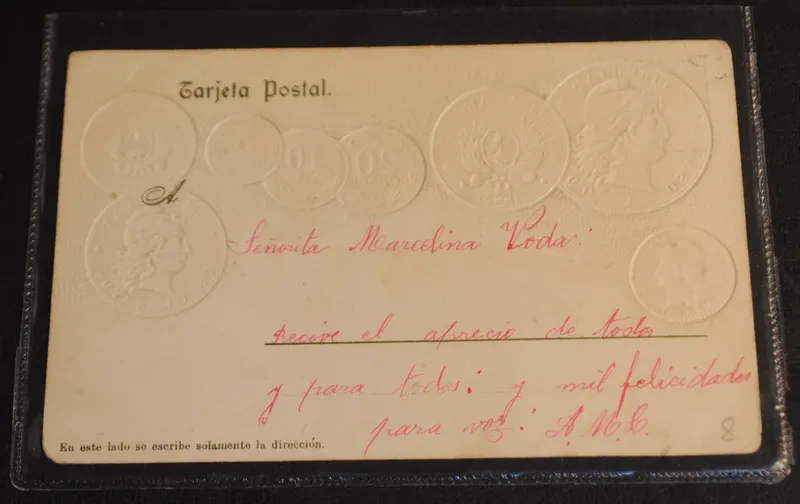 Tarjeta Postal.
A
Señorita Marcelina Voda:
Recive el aprecio de todos
y para todos: y mil felicidades
para vos: A. M. C.
En este lado se escribe solamente la dirección.
8
10
20